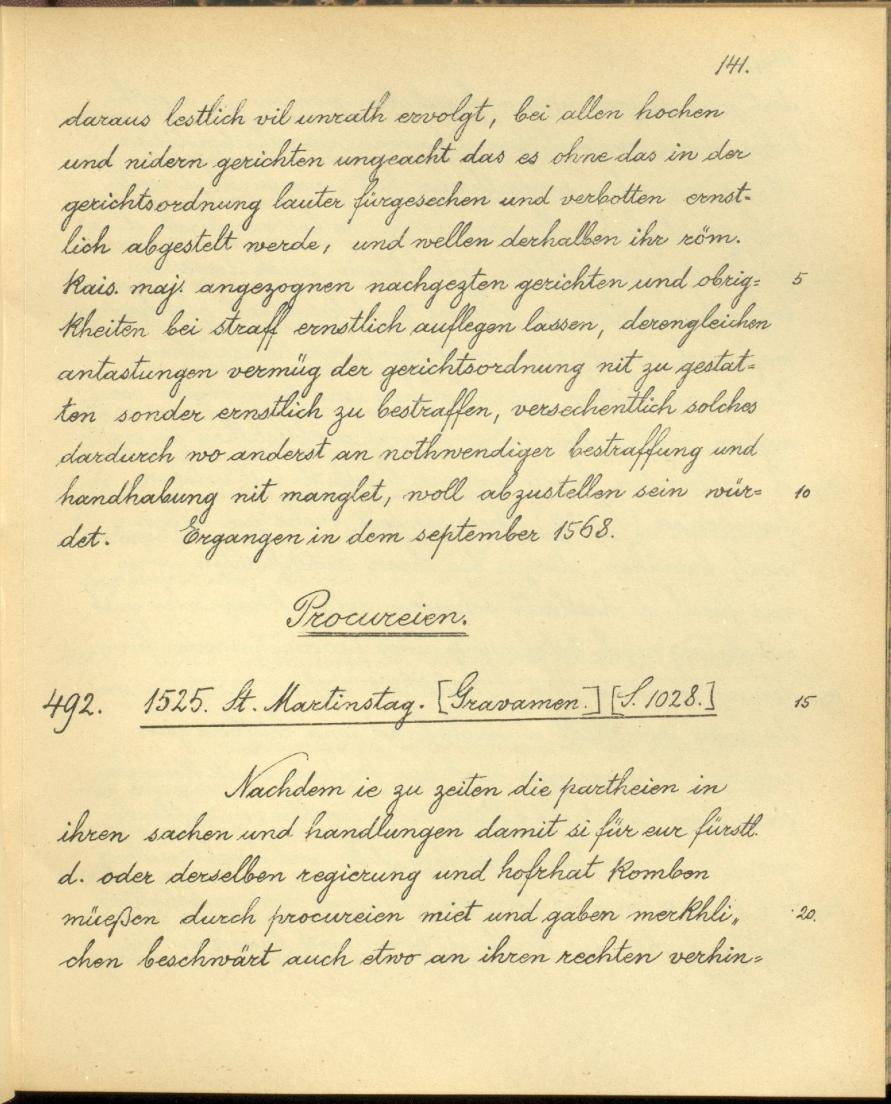 141.
daraus lestlich vil unrath ervolgt, bei allen hochen
und nidern gerichten ungeacht das es ohne das in der
gerichtsordnung lauter fürgesechen und verbotten ernst-
lich abgestelt werde, und wellen derhalben ihr röm.
kais. maj. angezognen nachgezten gerichten und obrig= 5
kheiten bei straff ernstlich auflegen lassen, derengleichen
antastungen vermüg der gerichtsordnung nit zu gestat=
ten sonder ernstlich zu bestraffen, versechentlich solches
dardurch wo anderst an nothwendiger bestraffung und
handhabung nit manglet, woll abzustellen sein wür= 10
det. Ergangen in dem september 1568.
Procureien.
492. 1525. St. Martinstag. [Gravamen.] [S. 1028.] 15
Nachdem ie zu zeiten die partheien in
ihren sachen und handlungen damit si für eur fürstl.
d. oder derselben regierung und hofrhat komben
müeßen durch procureien miet und gaben merkhli„ 20.
chen beschwärt auch etwo an ihren rechten verhin=